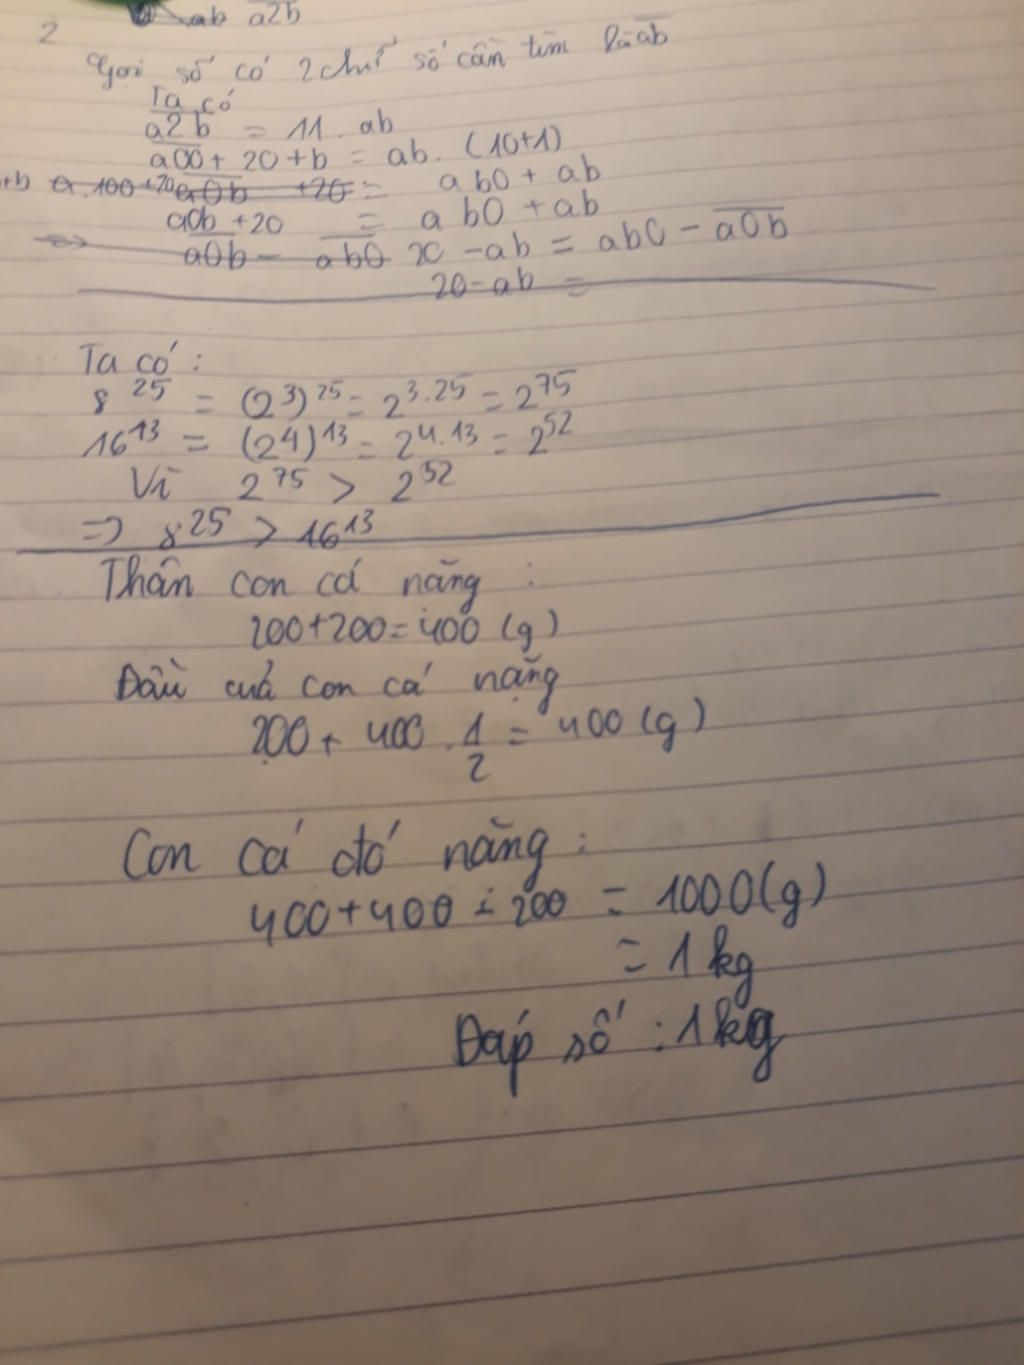 ab a2b
2
Gọi số có 2 chữ số cần tìm là ab
Ta có
a2b = 11. ab
a00 + 20 + b = ab. (10+1)
+b a.100 +20 a0b +20 = ab0 + ab
a0b + 20 = ab0 + ab
=> a0b - ab0 20 - ab = ab0 - a0b
20 - ab =
Ta có :
8^25 = (2^3)^25 = 2^3.25 = 2^75
16^13 = (2^4)^13 = 2^4.13 = 2^52
Vì 2^75 > 2^52
=> 8^25 > 16^13
Thân con cá nặng :
200+200=400 (g)
Đầu cuả con cá nặng
200 + 400 . 1/2 = 400 (g)
Con cá đó nặng :
400+400 + 200 = 1000(g)
= 1 kg
Đáp số : 1kg